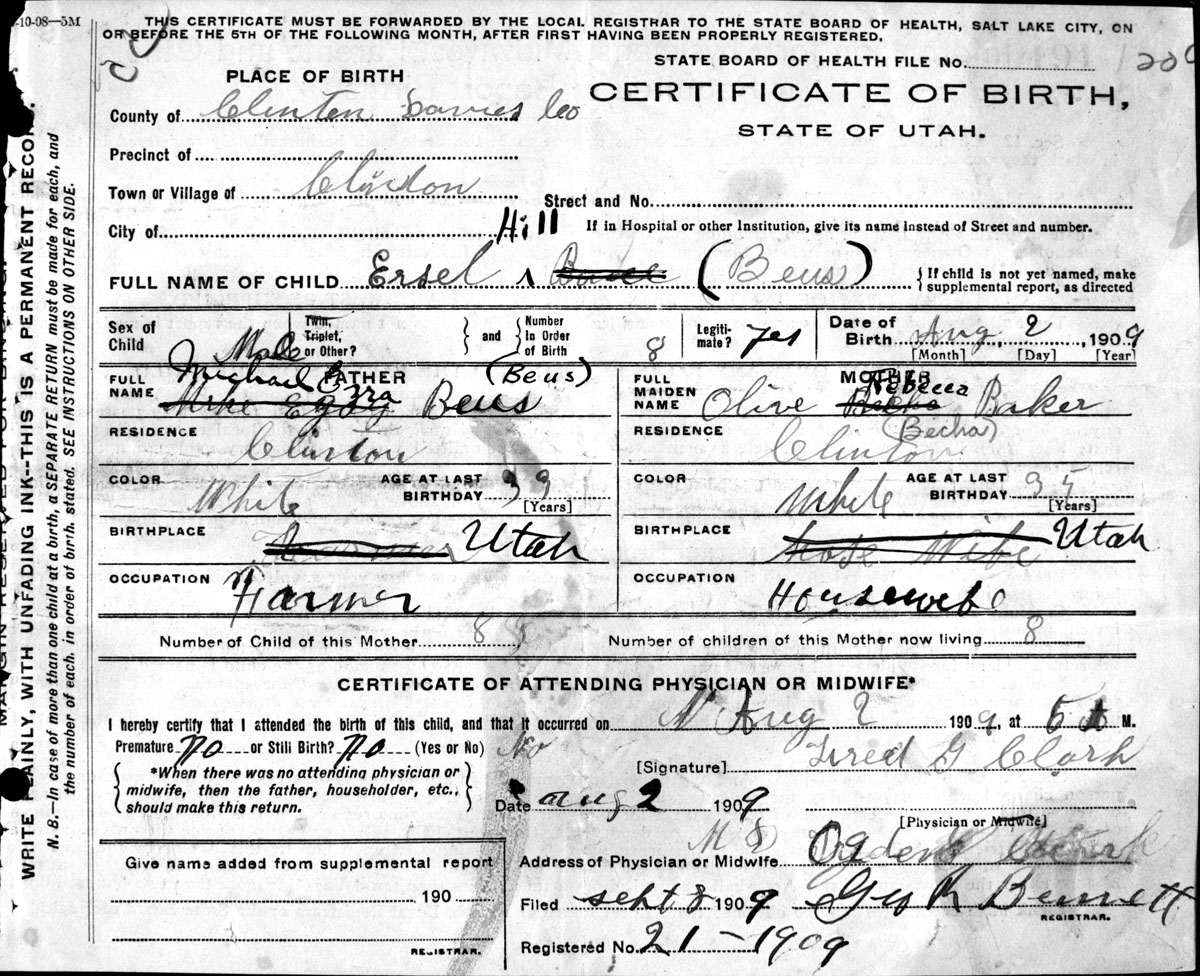 -10-08—5M
THIS CERTIFICATE MUST BE FORWARDED BY THE LOCAL REGISTRAR TO THE STATE BOARD OF HEALTH, SALT LAKE CITY, ON
OR BEFORE THE 5TH OF THE FOLLOWING MONTH, AFTER FIRST HAVING BEEN PROPERLY REGISTERED.
STATE BOARD OF HEALTH FILE No.
PLACE OF BIRTH
CERTIFICATE OF BIRTH,
STATE OF UTAH.
County of Clinton Davies Co
Precinct of
Town or Village of Clinton
Street and No.
City of Hill
If in Hospital or other Institution, give its name instead of Street and number.
FULL NAME OF CHILD Ersel (Beus)
{If child is not yet named, make
supplemental report, as directed
Sex of Child Male
Twin, Triplet, or Other? } and { Number In Order of Birth 8
Legiti-mate? yes
Date of Birth Aug 2, 1909
[Month] [Day] [Year]
FULL NAME FATHER Michael Ezra (Beus)
Mike Beus
FULL MAIDEN NAME MOTHER Rebecca
Olive Baker
RESIDENCE Clinton
RESIDENCE (Becha) Clinton
COLOR White AGE AT LAST BIRTHDAY 39 [Years]
COLOR White AGE AT LAST BIRTHDAY [Years]
BIRTHPLACE Utah
BIRTHPLACE House Wife Utah
OCCUPATION Farmer
OCCUPATION Housewife
Number of Child of this Mother 8 8
Number of children of this Mother now living 8
CERTIFICATE OF ATTENDING PHYSICIAN OR MIDWIFE*
I hereby certify that I attended the birth of this child, and that it occurred on Aug 2 1909, at 5 A M.
Premature No or Still Birth? No (Yes or No) No
*When there was no attending physician or
midwife, then the father, householder, etc.,
should make this return.
[Signature] Fred G Clark
Date Aug 2 1909
[Physician or Midwife]
M D
Give name added from supplemental report
190
REGISTRAR.
Address of Physician or Midwife Ogden
Filed Sept 8 1909 Geo R Bennett
REGISTRAR.
Registered No. 21-1909
WRITE PLAINLY, WITH UNFADING INK--THIS IS A PERMANENT RECORD.
N. B.—In case of more than one child at a birth, a SEPARATE RETURN must be made for each, and
the number of each, in order of birth, stated. SEE INSTRUCTIONS ON OTHER SIDE.